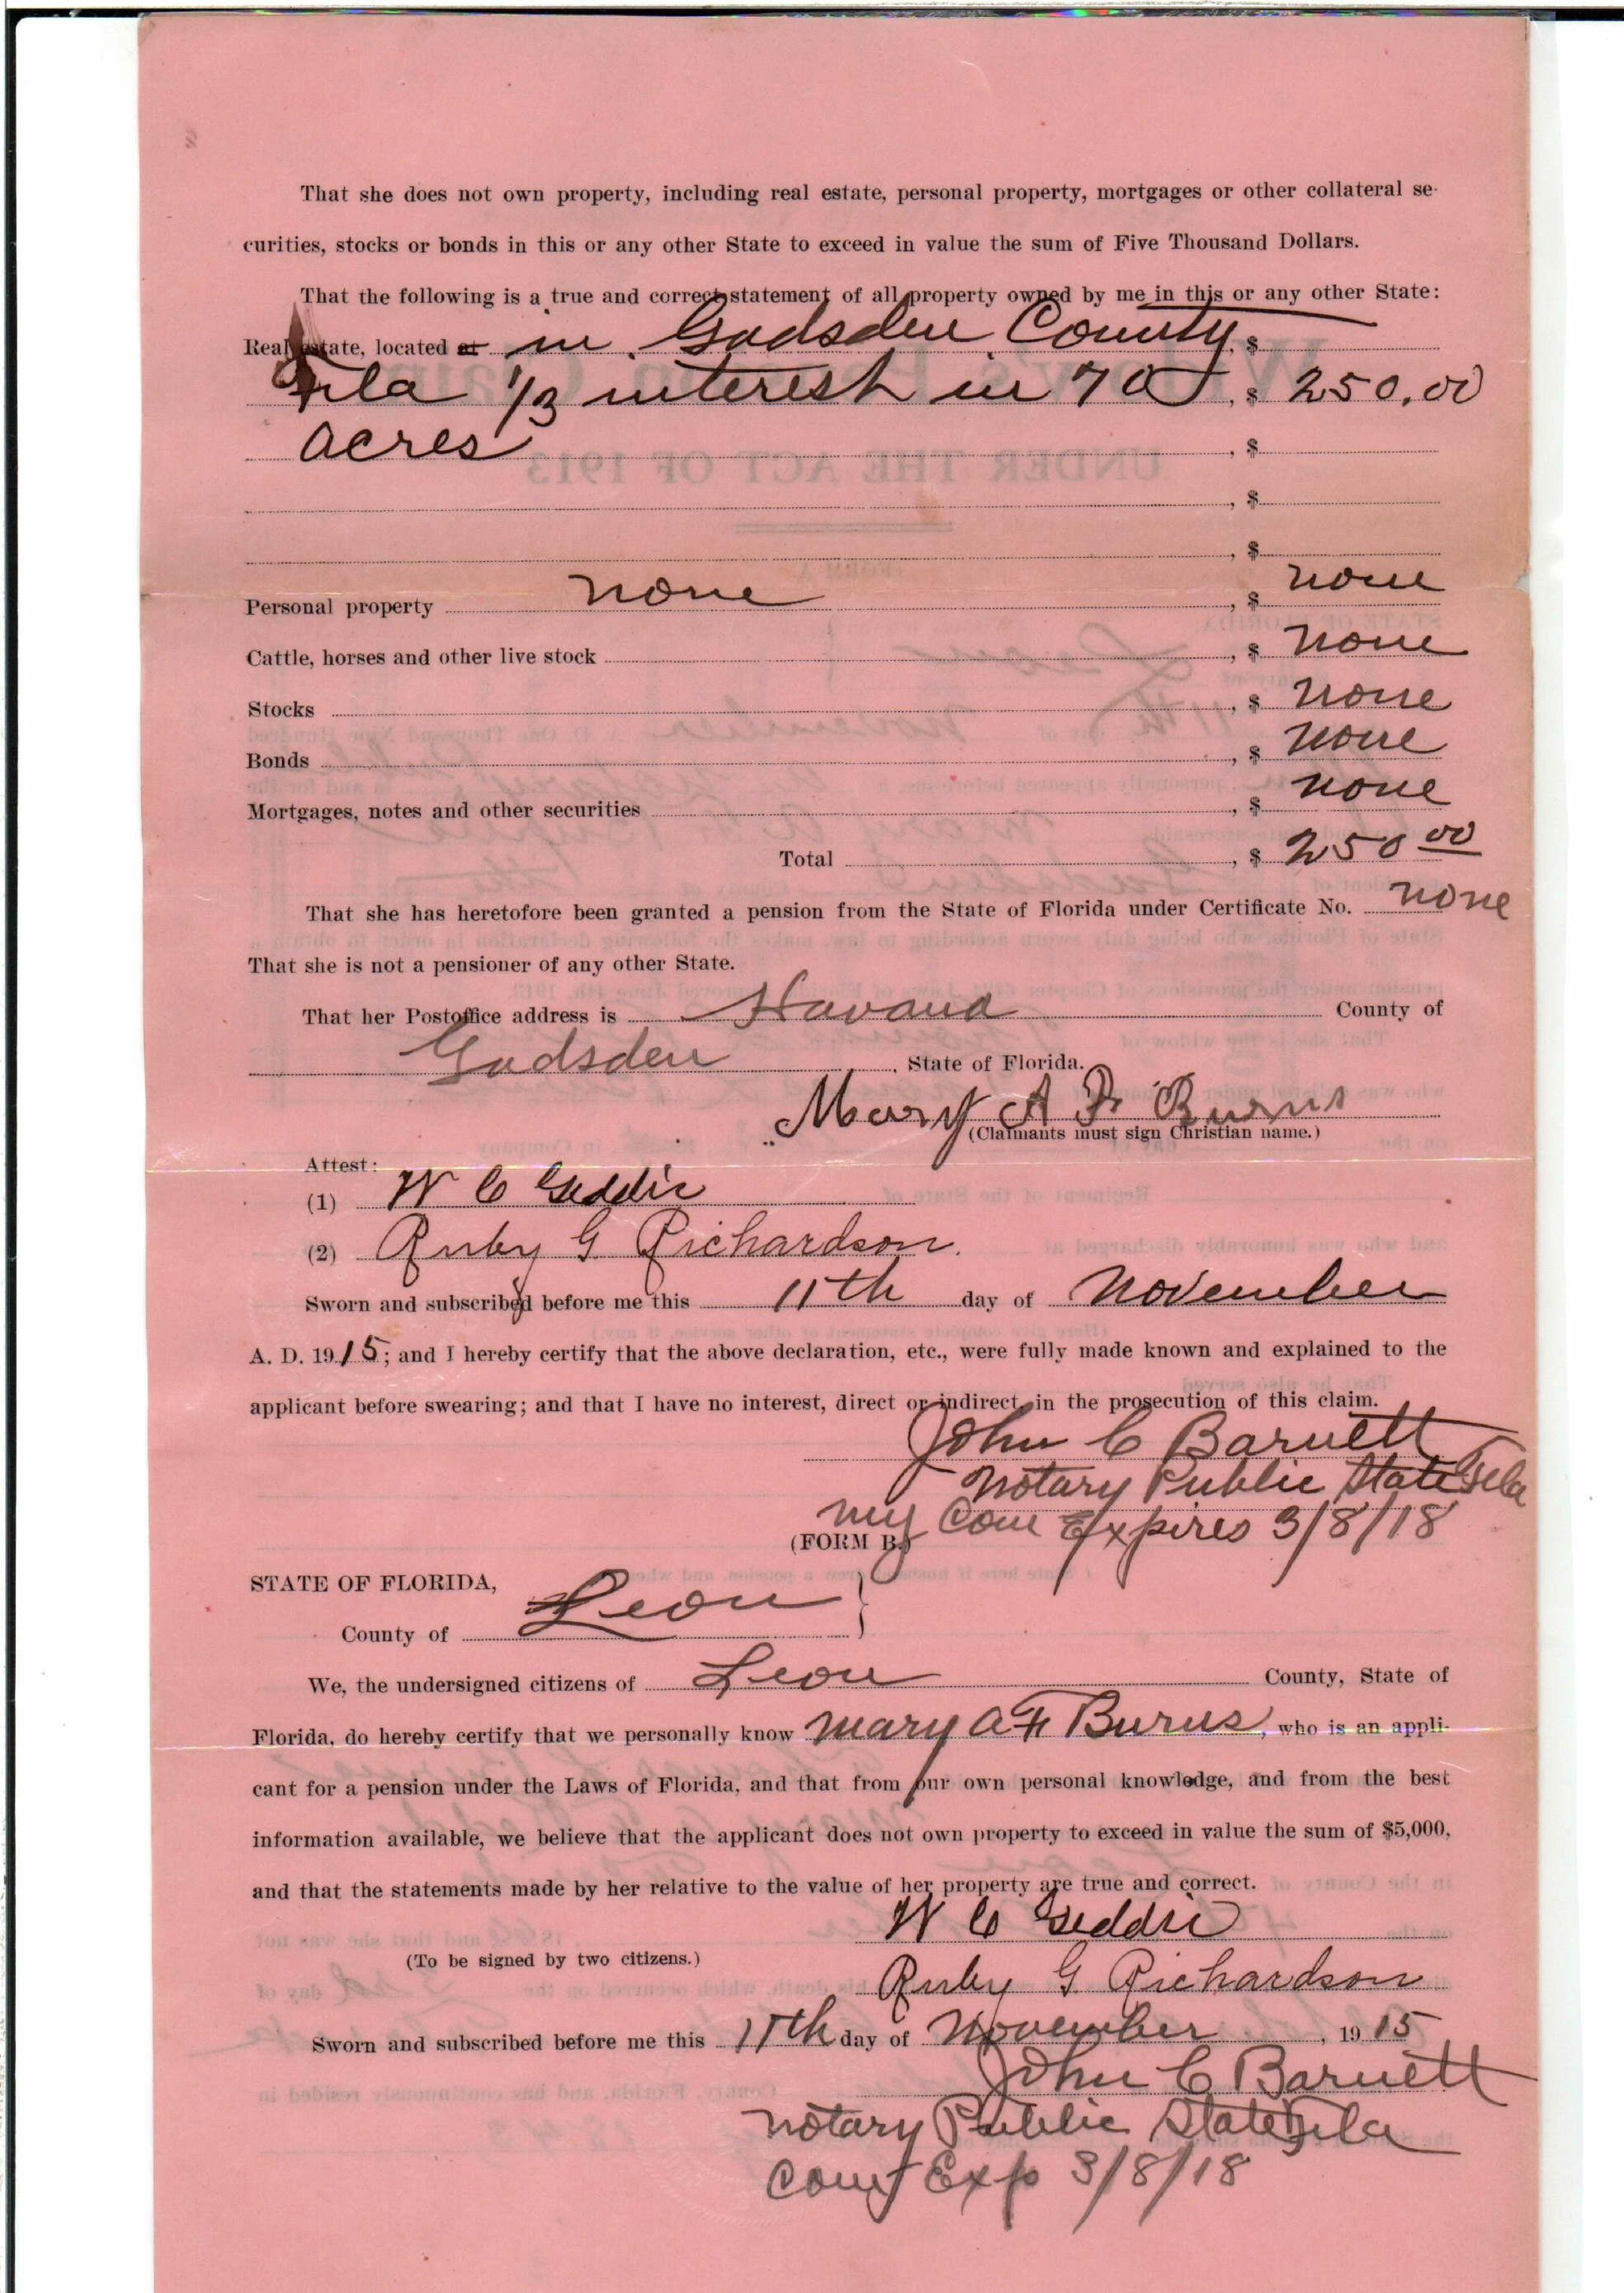 That she does not own property, including real estate, personal property, mortgages or other collateral se-
curities, stocks or bonds in this or any other State to exceed in value the sum of Five Thousand Dollars.
That the following is a true and correct statement of all property owned by me in this or any other State:
Real estate, located at in Gadsden County, $
Fla 1/3 interest in 70, $ 250.00
acres, $
, $
, $
Personal property none, $ none
Cattle, horses and other live stock, $ none
Stocks, $ none
Bonds, $ none
Mortgages, notes and other securities, $ none
Total, $ 250 00
That she has heretofore been granted a pension from the State of Florida under Certificate No. none
That she is not a pensioner of any other State.
That her Postoffice address is Havana County of
Gadsden, State of Florida.
Mary A F Burns
(Claimants must sign Christian name.)
Attest:
(1) W C Geddie
(2) Ruby G Richardson.
Sworn and subscribed before me this 11th day of November
A. D. 1915; and I hereby certify that the above declaration, etc., were fully made known and explained to the
applicant before swearing; and that I have no interest, direct or indirect, in the prosecution of this claim.
John C Barnett
Notary Public State Fla
my Com Expires 3/8/18
(FORM B.)
STATE OF FLORIDA,
County of Leon }
We, the undersigned citizens of Leon County, State of
Florida, do hereby certify that we personally know Mary A F Burns, who is an appli-
cant for a pension under the Laws of Florida, and that from our own personal knowledge, and from the best
information available, we believe that the applicant does not own property to exceed in value the sum of $5,000,
and that the statements made by her relative to the value of her property are true and correct.
W C Geddie
(To be signed by two citizens.)
Ruby G Richardson
Sworn and subscribed before me this 11th day of November, 1915
John C Barnett
Notary Public State Fla
Exp 3/8/18